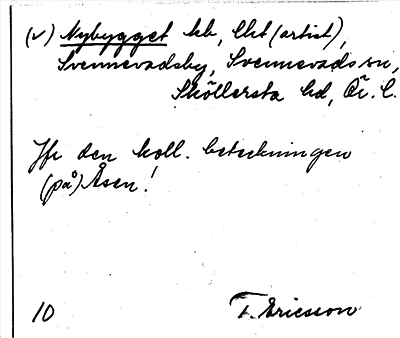 (v) Nybygget hb, lht (artist),
Svennevadsby, Svennevads sn,
Sköllersta hd, Ö. l.
Jfr den koll. beteckningen
(på) Åsen!
10 T. Ericsson